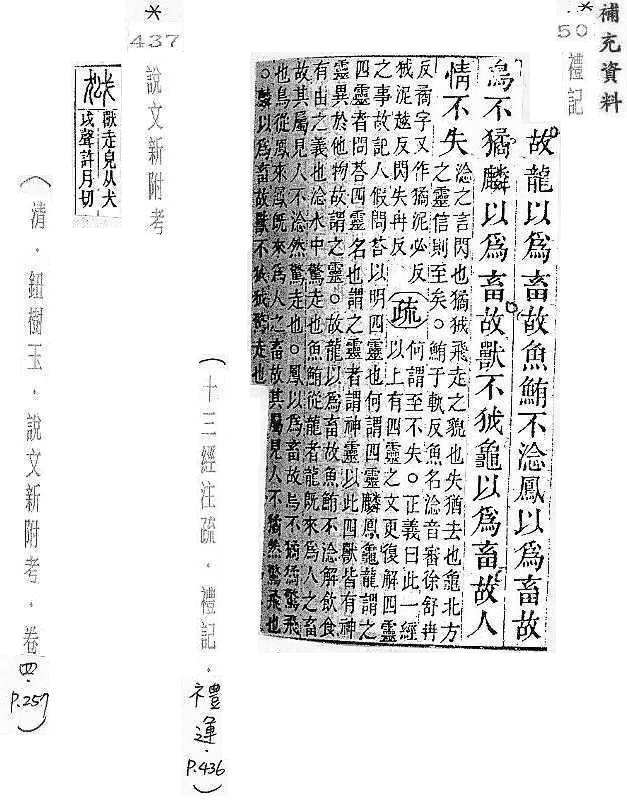 補充資料
*
50
禮記
故龍以爲畜故魚鮪不淰鳳以爲畜故
鳥不獝麟以爲畜故獸不狘龜以爲畜故人
情不失
淰之言閃也獝狘飛走之貌也失猶去也龜北方
之靈信則至矣。鮪于軌反魚名淰音審徐舒冉
反獝字又作獝泥必反
狘泥越反閃失冉反
疏
何謂至不失。正義曰此一經
以上有四靈之文更復解四靈
之事故記人假問荅以明四靈也何謂四靈麟鳳龜龍謂之
四靈者問荅四靈名也謂之靈者謂神靈以此四獸皆有神
靈異於他物故謂之靈。故龍以爲畜故魚鮪不淰解飲食
有由之義也淰水中驚走也魚鮪從龍者龍既來爲人之畜
故其屬見人不淰然驚走也。鳳以爲畜故鳥不獝獝驚飛
也鳥從鳳來鳳既來爲人之畜故其屬見人不獝然驚飛也
。麟以爲畜故獸不狘狘驚走也
(十三經注疏.禮記.禮運.P.436)
*
437
說文新附考
狘
獸走皃从犬
戉聲許月切
(清.鈕樹玉.說文新附考.卷四.P.257)